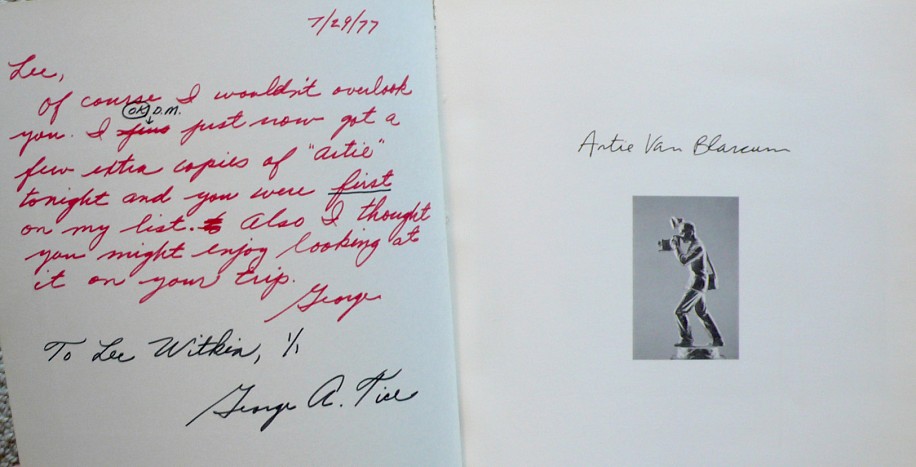 7/29/77
Lee,
Of course I wouldn't overlook
OK D.M.
you. I just now got a
few extra copies of "Artie"
tonight and you were first
on my list. Also I thought
you might enjoy looking at
it on your trip.
George
To Lee Witkin, 1/1
George A. Tice
Artie Van Blarcum